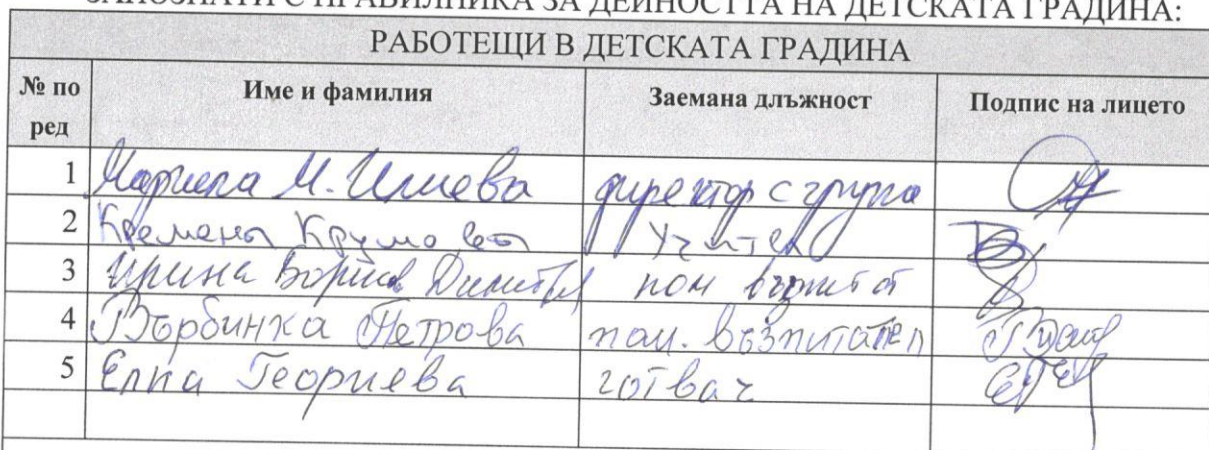 ЗАПОЗНАТИ С ПРАВИЛНИКА ЗА ДЕЙНОСТТА НА ДЕТСКАТА ГРАДИНА:
РАБОТЕЩИ В ДЕТСКАТА ГРАДИНА
№ по ред Име и фамилия Заемана длъжност Подпис на лицето
1 Мариела М. Илиева директор с група
2 Кремена Крумова Учител
3 Ирина Борисова пом
4 Върбинка Петрова пом. възпитател
5 Елка Георгиева готвач